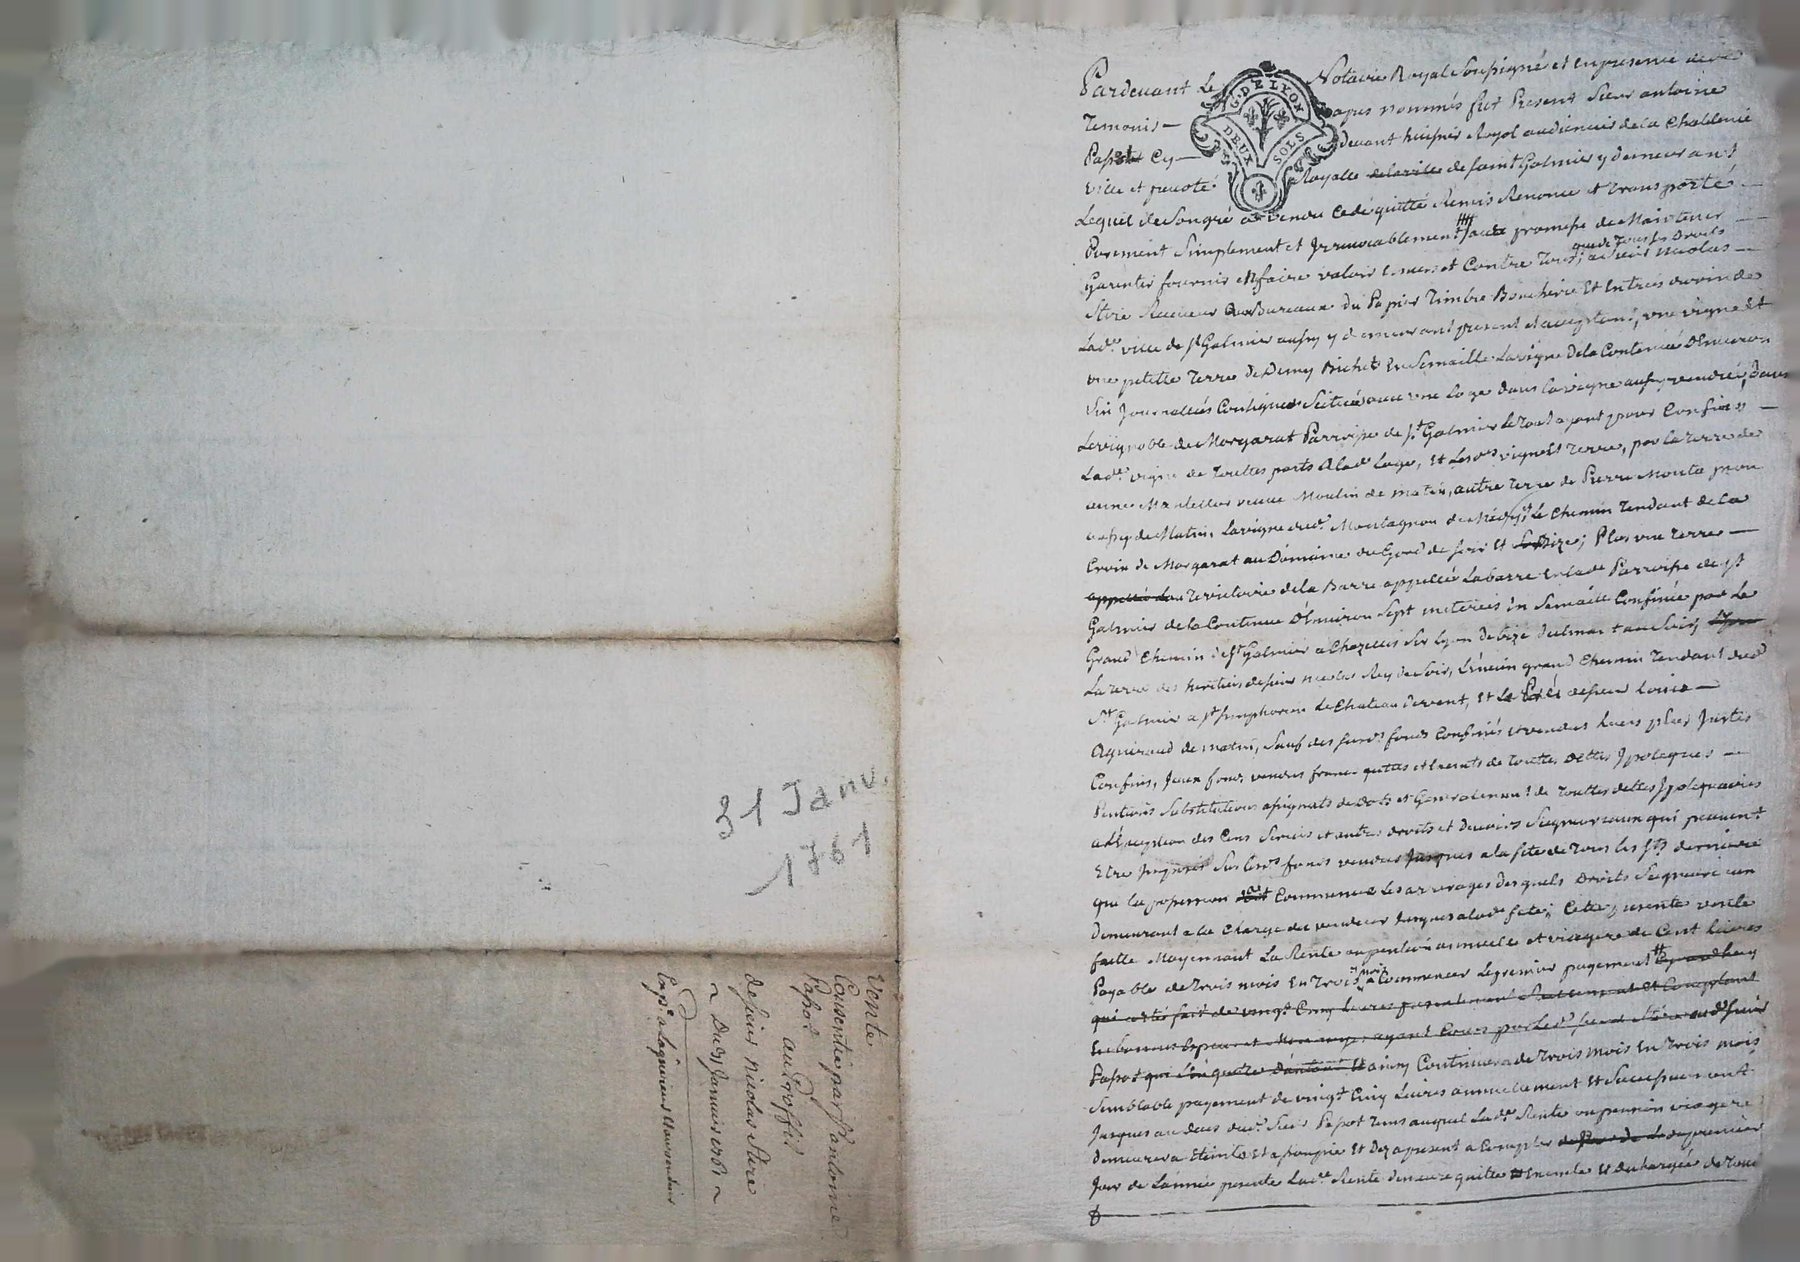 31 Janv.
1761
Vente
Consentie par Sr antoine
Papot au proffit
de sieur nicolas Stere
Du 31 Janvier 1761
G. DE LYON
DEUX SOLS
Pardevant Le Notaire Royal Soussigné et en presence des
Temoins apres nommés fut Present Sieur antoine
Papot Cy devant huissier Royal audiencier de la Chatlenie
ville et Royalle de la ville de saint Galmier y demeurant
Lequel de Son gré a vendu Cedé quitté Remis Renoncé et transporté
Purement Simplement et Irrevocablement avec promesse de Maintenir
que de Tous ses Droits
Garentir fournir et faire valoir Envers et Contre Tous, a Sieur Nicolas
Stere Receveur aux Bureaux du Papier Timbre Boucherie Et Entrées du vin de
Lade. ville de St Galmier aussy y demeurant present et acceptant, une vigne et
une petitte Terre de Demy Bichet En Semaille La vigne de la Contenue D'Environ
Six Journallées Contigues Scituées avec une Loge dans la vigne aussy vendüe, Dans
Le vignoble de Morgarat Parroisse de St Galmier Le Tout ayant pour Confins
Lade. vigne de Touttes parts a lade Loge, Et Lesdes vigne et Terre, par la terre de
veuve Moulin de matin, autre Terre de Pierre
aussy de Matin, La vigne dud. Montagnon de Le Chemin Tendant de la
Croix de Morgarat au Domaine du de soir Et Bize; Plus une Terre
appellée au Territoire de la Barre appellée Labarre En lade Parroisse de St
Galmier de la Contenue D'Environ Sept meterées En Semaille Confinée par Le
Grand Chemin de St Galmier a Chazelles Sur Lyon de bize
La terre des heritiers de sieur nicolas Rey de Soir, L'encien grand Chemin Tendant dud
St Galmier a St Simphorien Le Chateau de vent, Et Le Pré de sieur Louis
de matin, Sauf des fonds Confinés et vendus Leurs plus Justes
Confins, Iceux fonds vendus francs quittes et Exempts de Touttes Dettes Ipoteques
Pentions Substitutions et Generalement de Touttes dettes Ipotequaires
a L'Exception des Cens Servis et autres droits et Devoirs Seigneuriaux qui peuvent
Etre Imposés Sur lesds fonds vendus Jusques a la fete de Tous les Sts derniere
que la possession a Commencé Les arrerages des quels Droits Seigneuriaux
demeurant a la Charge du vendeur Jusques a lade fete; Cette presente vente
faitte Moyennant La Rente ou pention annuelle et viagere de Cent Livres
Payable de Trois mois En Trois mois a Commencer Le premier payement
qui de vingt Cinq Livres
Papot ainsy Continuera de Trois mois En Trois mois
Semblable payement de vingt Cinq Livres annuellement Et Successivement
Jusques au deces dud. Sieur Papot Tems auquel Lade. Rente ou pension viagere
demeurera Eteinte Et Et Des apresent a Compter du premier
Jour de L'année presente Lade. Rente demeure quitte Exempte Et dechargée de Tous